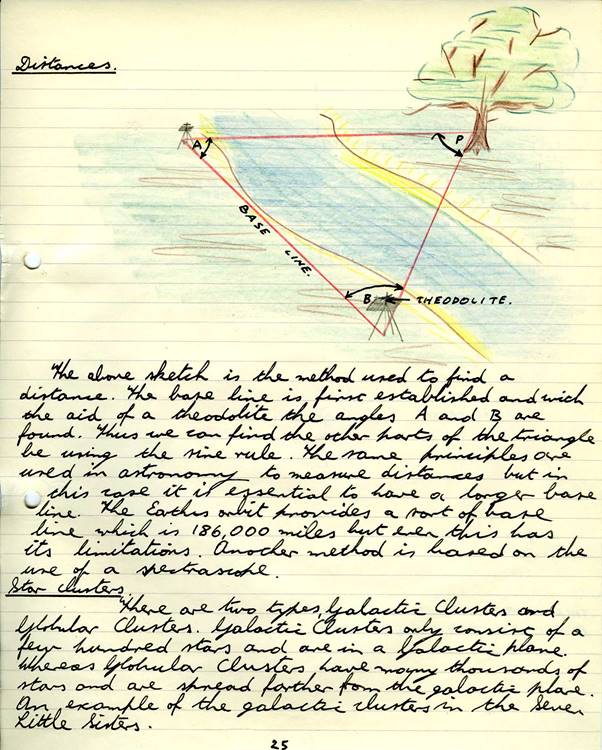 Distances.
A
P
BASE LINE.
B
THEODOLITE.
The above sketch is the method used to find a
distance. The base line is first established and with
the aid of a theodolite the angles A and B are
found. Thus we can find the other parts of the triangle
be using the sine rule. The same principles are
used in astronomy to measure distances but in
this case it is essential to have a larger base
line. The Earths orbit provides a sort of base
line which is 186,000 miles but even this has
its limitations. Another method is based on the
use of a spectrascope.
Star Clusters
There are two types, Galactic Clusters and
Globular Clusters. Galactic Clusters only consist of a
few hundred stars and are in a Galactic plane.
Whereas Globular Clusters have many thousands of
stars and are spread farther from the galactic plane.
An example of the galactic clusters in the Seven
Little Sisters.
25